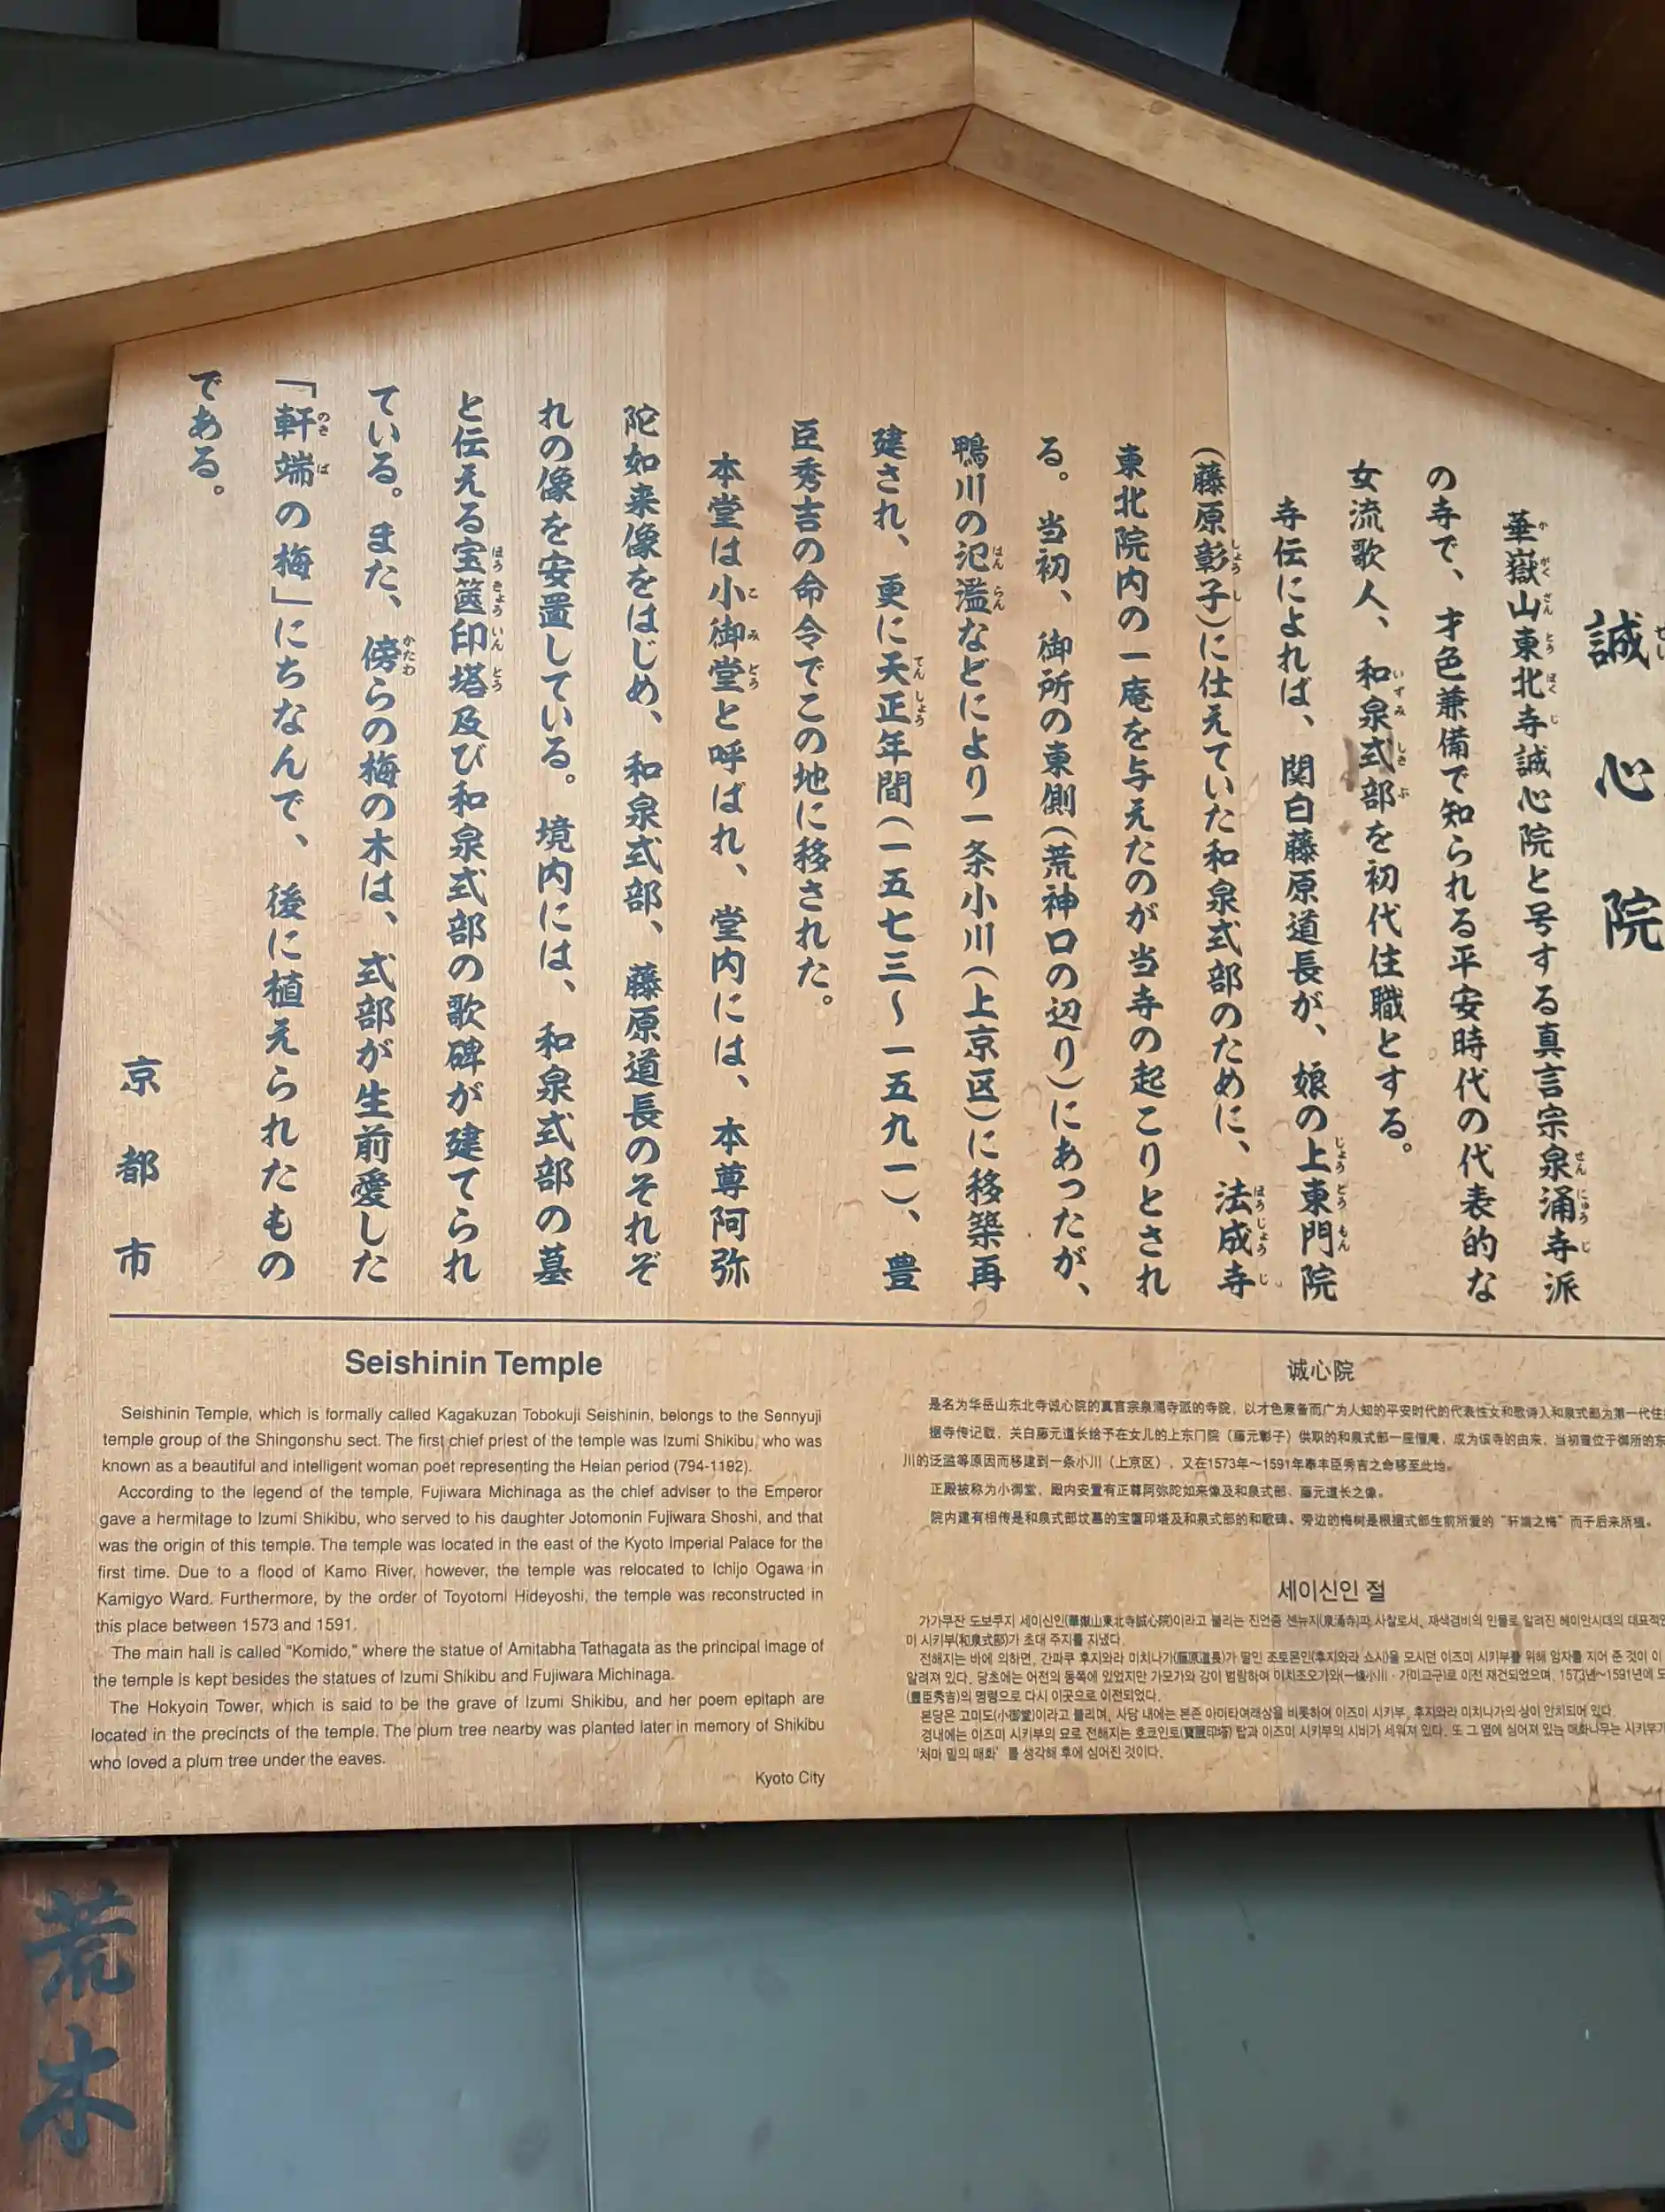 誠心院
華嶽山東北寺誠心院と号する真言宗泉涌寺派
の寺で、才色兼備で知られる平安時代の代表的な
女流歌人、和泉式部を初代住職とする。
寺伝によれば、関白藤原道長が、娘の上東門院
(藤原彰子)に仕えていた和泉式部のために、法成寺
東北院内の一庵を与えたのが当寺の起こりとされ
る。当初、御所の東側(荒神口の辺り)にあったが、
鴨川の氾濫などにより一条小川(上京区)に移築再
建され、更に天正年間(一五七三～一五九一)、豊
臣秀吉の命令でこの地に移された。
本堂は小御堂と呼ばれ、堂内には、本尊阿弥
陀如来像をはじめ、和泉式部、藤原道長のそれぞ
れの像を安置している。境内には、和泉式部の墓
と伝える宝篋印塔及び和泉式部の歌碑が建てられ
ている。また、傍らの梅の木は、式部が生前愛した
「軒端の梅」にちなんで、後に植えられたもの
である。
京都市
Seishinin Temple
Seishinin Temple, which is formally called Kagakuzan Tobokuji Seishinin, belongs to the Sennyuji
temple group of the Shingonshu sect. The first chief priest of the temple was Izumi Shikibu, who was
known as a beautiful and intelligent woman poet representing the Heian period (794-1192).
According to the legend of the temple, Fujiwara Michinaga as the chief adviser to the Emperor
gave a hermitage to Izumi Shikibu, who served to his daughter Jotomonin Fujiwara Shoshi, and that
was the origin of this temple. The temple was located in the east of the Kyoto Imperial Palace for the
first time. Due to a flood of Kamo River, however, the temple was relocated to Ichijo Ogawa in
Kamigyo Ward. Furthermore, by the order of Toyotomi Hideyoshi, the temple was reconstructed in
this place between 1573 and 1591.
The main hall is called “Komido,” where the statue of Amitabha Tathagata as the principal image of
the temple is kept besides the statues of Izumi Shikibu and Fujiwara Michinaga.
The Hokyoin Tower, which is said to be the grave of Izumi Shikibu, and her poem epitaph are
located in the precincts of the temple. The plum tree nearby was planted later in memory of Shikibu
who loved a plum tree under the eaves.
Kyoto City
诚心院
是名为华岳山东北寺诚心院的真言宗泉涌寺派的寺院，以才色兼备而广为人知的平安时代的代表性女和歌诗人和泉式部为第一代住
据寺传记载，关白藤元道长给予在女儿的上东门院（藤元彰子）供职的和泉式部一座僧庵，成为该寺的由来，当初置位于御所的东
川的泛滥等原因而移建到一条小川（上京区），又在1573年～1591年奉丰臣秀吉之命移至此地。
正殿被称为小御堂，殿内安置有正尊阿弥陀如来像及和泉式部、藤元道长之像。
院内建有相传是和泉式部坟墓的宝箧印塔及和泉式部的和歌碑。旁边的梅树是根据式部生前所爱的“轩端之梅”而于后来所植。
세이신인 절
가가쿠잔 도보쿠지 세이신인(華嶽山東北寺誠心院)이라고 불리는 진언종 센뉴지(泉涌寺)파 사찰로서, 재색겸비의 인물로 알려진 헤이안시대의 대표적인
미 시키부(和泉式部)가 초대 주지를 지냈다.
전해지는 바에 의하면, 간파쿠 후지와라 미치나가(藤原道長)가 딸인 조토몬인(후지와라 쇼시)을 모시던 이즈미 시키부를 위해 암자를 지어 준 것이 이
알려져 있다. 당초에는 어전의 동쪽에 있었지만 가모가와 강이 범람하여 이치조오가와(一條小川・가미교구)로 이전 재건되었으며, 1573년～1591년에 도
(豊臣秀吉)의 명령으로 다시 이곳으로 이전되었다.
본당은 고미도(小御堂)이라고 불리며, 사당 내에는 본존 아미타여래상을 비롯하여 이즈미 시키부, 후지와라 미치나가의 상이 안치되어 있다.
경내에는 이즈미 시키부의 묘로 전해지는 호쿄인토(寶篋印塔) 탑과 이즈미 시키부의 시비가 세워져 있다. 또 그 옆에 심어져 있는 매화나무는 시키부가
‘처마 밑의 매화’를 생각해 후에 심어진 것이다.
荒木